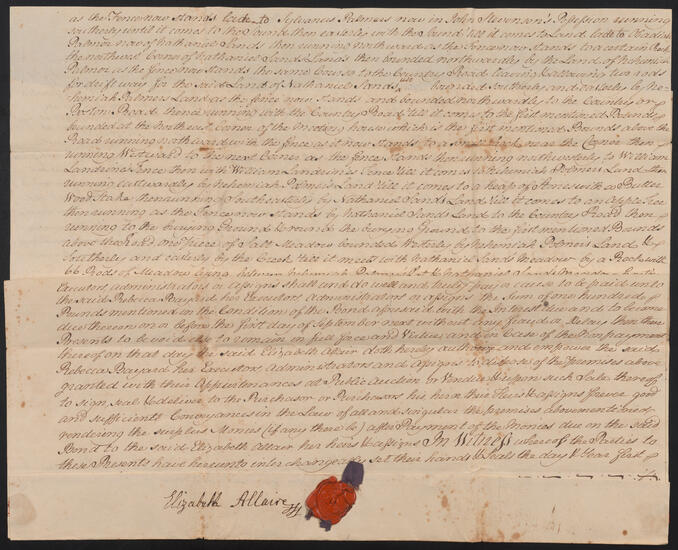 as the Fence now stands late to Sylvanus Palmers now in John Stevenson's Possession running
southerly until it comes to the Sound then easterly with the Sound till it comes to Land late to Obadiah
Palmer now of Nathaniel Sands then running northward as the Fence now stands to a certain Rock
the northwest Corner of Nathaniel Sands Lands then bounded northwardly by the Land of Nehemiah
Palmer as the fence now stands the same Course to the Country Road leaving & allowing two rods
for drift way for the said Land of Nathaniel Sands bounded Southerly and easterly by Ne
hemiah Palmers Land as the fence now stands and bounded northwardly to the Country or
Boston Road thence running with the Country Road till it comes to the first mentioned Bounds
bounded at the Northwest Corner of the Meeting house which is the first mentioned Bounds above the
Road running northward with the fence as it now Stands to a near the Corner then
running Westward to the next Corner as the fence stands then running northwesterly to William
Landrins Fence then with William Landrins Fence till it comes to Nehemiah Palmers Land then
running eastwardly by Nehemiah Palmers Land till it comes to a heap of Stones with a Butter
Wood Stake then running Southeasterly by Nathaniel Sands Land till it comes to an Apple Tree
then running as the Fence now stands by Nathaniel Sands Land to the Country Road then
running to the burying Ground & round the burying Ground to the first mentioned Bounds
above the Road one piece of Salt Meadow bounded Westerly by Nehemiah Palmers Land &
Southerly and easterly by the Creek till it meets with Nathaniel Sands Meadow by a Rock with
66 Rods of Meadow lying between Nehemiah & Nathaniel Sands
Executors, administrators or assigns shall and do well and truly pay or cause to be paid unto
the said Rebecca Bayard her Executors Administrators or assigns the Sum of one hundred
Pounds mentioned in the Condition of the Bond aforesaid with the Interest due and to become
due thereon on or before the first day of September next without any fraud or Delay then these
Presents to be void else to remain in full force and Virtue and in Case of the Non payment
thereof on that day the said Elizabeth Allair doth hereby authorize and impower the said
Rebecca Bayard her Executors Administrators and Assigns to dispose of the premises above
granted with their Appurtenances at Public Auction or Vendue & upon such Sale thereof
to sign, seal & deliver to the Purchasor or Purchasors his her or their Heirs & assigns forever good
and sufficient Conveyances in the Law of all and singular the premises abovementioned
rendering the surplus Monies (if any there be) after Payment of the Monies due on the said
Bond to the said Elizabeth Allair her heirs & assigns In Witness whereof the Parties to
these Presents have hereunto interchangeably set their hands & Seals the day & Year first
Elizabeth Allaire